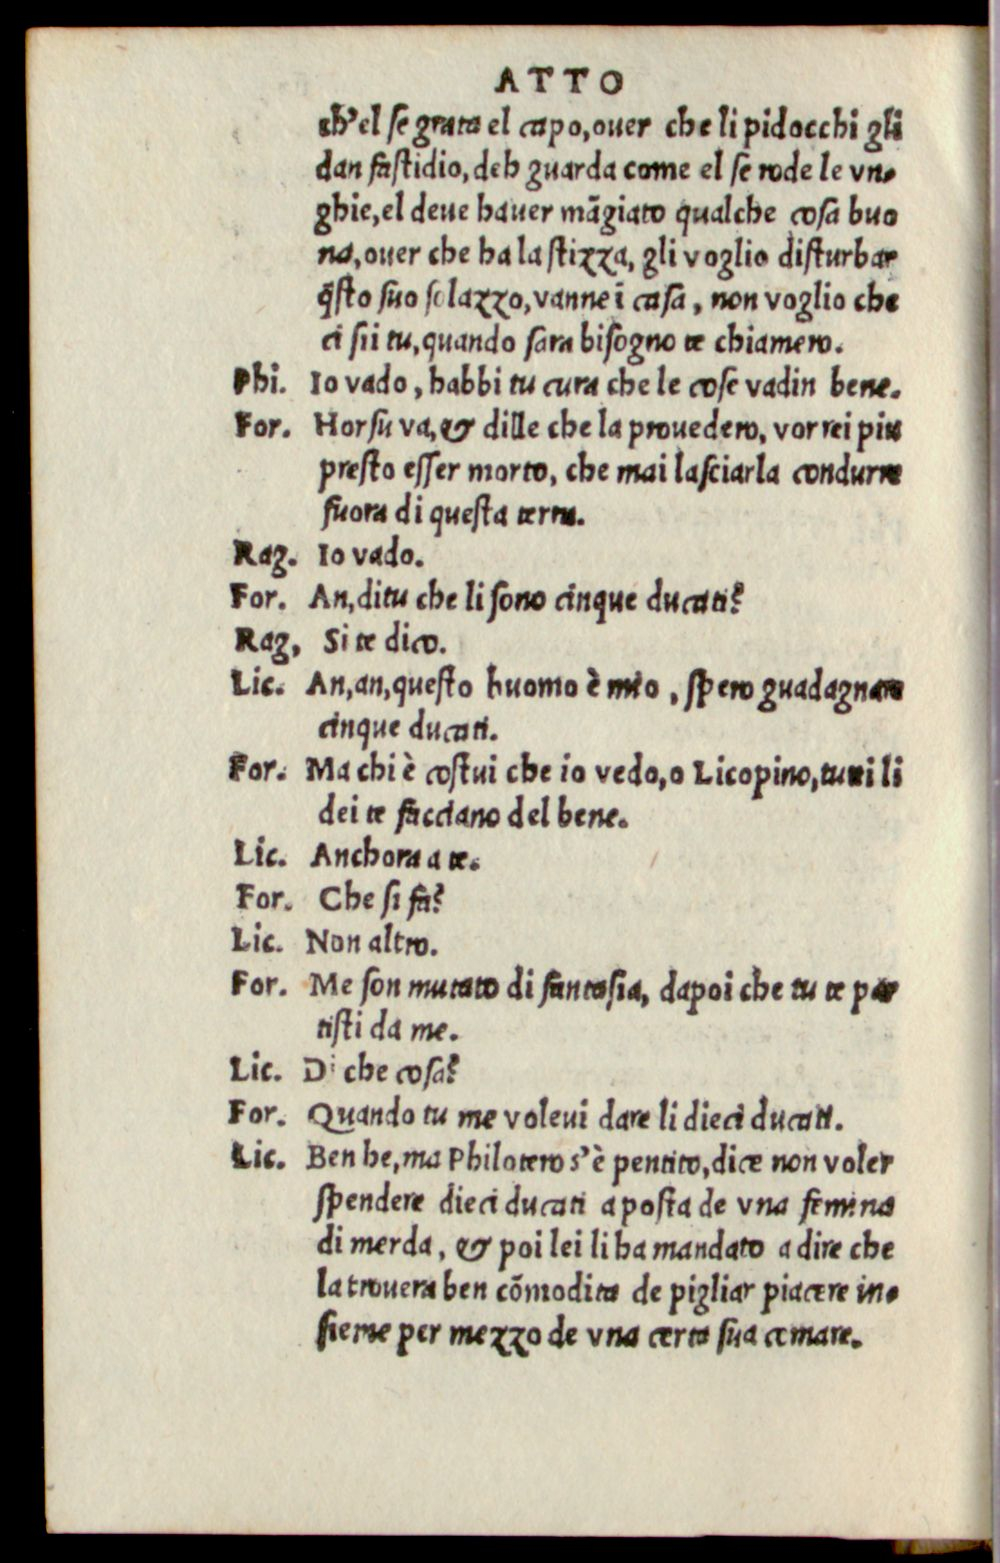 ATTO
ch'el se grata el capo, ouer che li pidocchi gli
dan fastidio, deh guarda come el se rode le vn-
ghie, el deue hauer mãgiato qualche cosa buo
na, ouer che ha la stizza, gli voglio disturbar
q̃sto suo solazzo, vanne ĩ casa, non voglio che
ci sii tu, quando sara bisogno te chiamero.
Phi. Io vado, habbi tu cura che le cose vadin bene.
For. Hor su va, & dille che la prouedero, vorrei piu
presto esser morto, che mai lasciarla condurre
fuora di questa terra.
Rag. Io vado.
For. An, di tu che li sono cinque ducati?
Rag, Si te dico.
Lic. An, an, questo huomo è mio, spero guadagnare
cinque ducati.
For. Ma chi è costui che io vedo, o Licopino, tutti li
dei te facciano del bene.
Lic. Anchora a te.
For. Che si fa?
Lic. Non altro.
For. Me son mutato di fantasia, dapoi che tu te par
tisti da me.
Lic. Di che cosa?
For. Quando tu me voleui dare li dieci ducati.
Lic. Ben he, ma Philotero s'è pentito, dice non voler
spendere dieci ducati a posta de vna femina
di merda, & poi lei li ha mandato a dire che
la trouera ben cõmodita de pigliar piacere in-
sieme per mezzo de vna certa sua cemare.